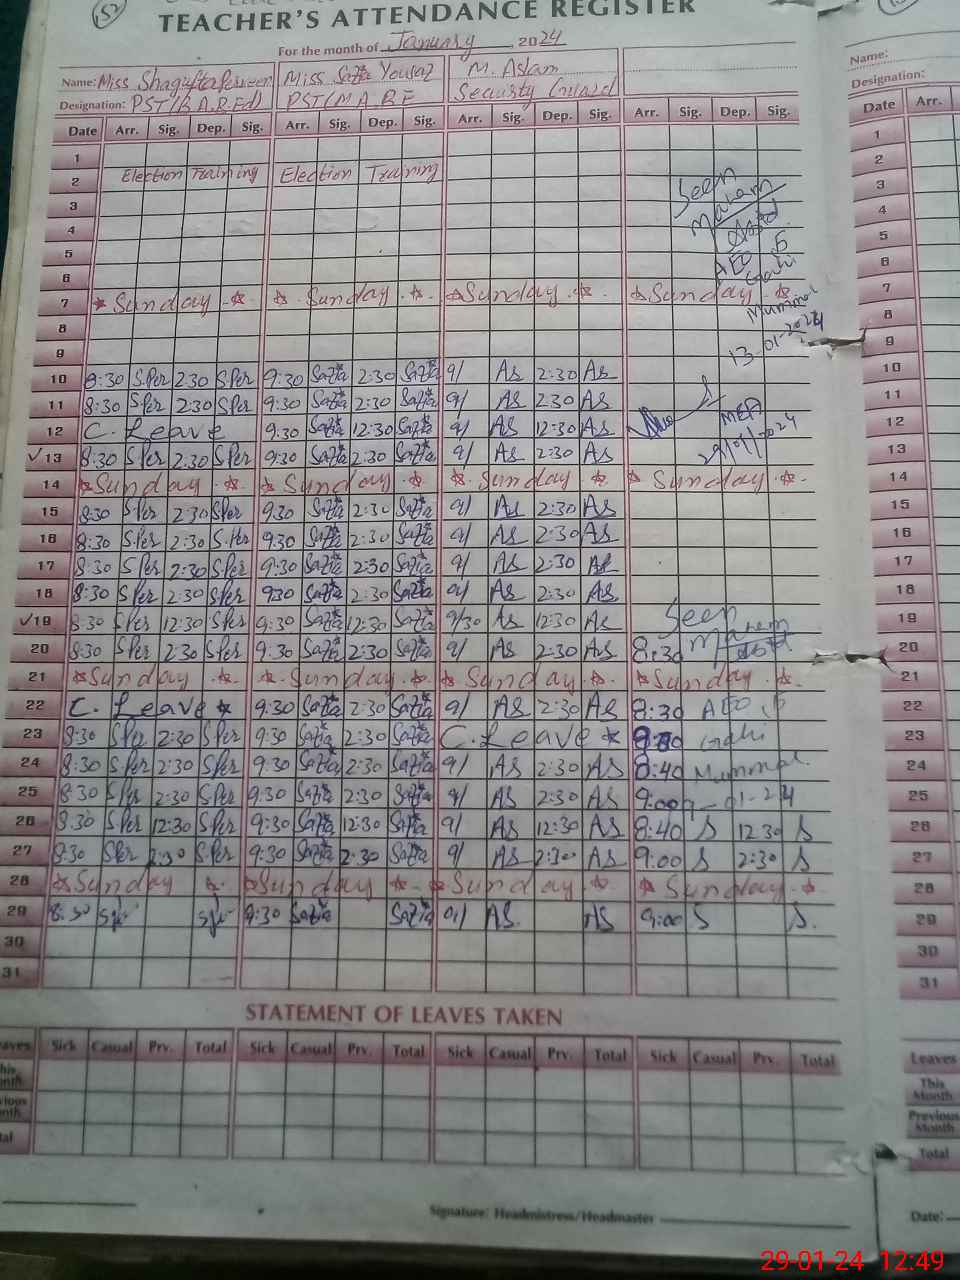 TEACHER'S ATTENDANCE REGISTER
For the month of January 2024
Name: Miss Shagufta Parveen Miss Sazia Yousaf M. Aslam
Designation: PST(B.A.B.Ed) PST(M.A.B.E Security Guard
Date Arr. Sig. Dep. Sig. Arr. Sig. Dep. Sig. Arr. Sig. Dep. Sig. Arr. Sig. Dep. Sig.
1
2 Election Training Election Training
3 Seen
4 Maham
5
6 AEO
7 Sunday Sunday Sunday Sunday
8 Mummal
9 13-01-2024
10 8:30 S.Per 2:30 S.Per 9:30 Sazia 2:30 Sazia 9/ AS 2:30 AS
11 8:30 S.Per 2:30 S.Per 9:30 Sazia 2:30 Sazia 9/ AS 2:30 AS
12 C. Leave 9:30 Sazia 12:30 Sazia 9/ AS 12:30 AS MEA
13 8:30 S.Per 2:30 S.Per 9:30 Sazia 2:30 Sazia 9/ AS 2:30 AS
14 Sunday Sunday Sunday Sunday
15 8:30 S.Per 2:30 S.Per 9:30 Sazia 2:30 Sazia 9/ AS 2:30 AS
16 8:30 S.Per 2:30 S.Per 9:30 Sazia 2:30 Sazia 9/ AS 2:30 AS
17 8:30 S.Per 2:30 S.Per 9:30 Sazia 2:30 Sazia 9/ AS 2:30 AS
18 8:30 S.Per 2:30 S.Per 9:30 Sazia 2:30 Sazia 9/ AS 2:30 AS
19 8:30 S.Per 12:30 S.Per 9:30 Sazia 12:30 Sazia 9/30 AS 12:30 AS Seen
20 8:30 S.Per 2:30 S.Per 9:30 Sazia 2:30 Sazia 9/ AS 2:30 AS 8:30 Maham
21 Sunday Sunday Sunday Sunday
22 C. Leave 9:30 Sazia 2:30 Sazia 9/ AS 2:30 AS 8:30 AEO
23 8:30 S.Per 2:30 S.Per 9:30 Sazia 2:30 Sazia C. Leave Gahi
24 8:30 S.Per 2:30 S.Per 9:30 Sazia 2:30 Sazia 9/ AS 2:30 AS 8:40 Mummal
25 8:30 S.Per 2:30 S.Per 9:30 Sazia 2:30 Sazia 9/ AS 2:30 AS 9:00 -01-24
26 8:30 S.Per 12:30 S.Per 9:30 Sazia 12:30 Sazia 9/ AS 12:30 AS 8:40 S 12:30 S
27 8:30 S.Per 2:30 S.Per 9:30 Sazia 2:30 Sazia 9/ AS 2:30 AS 9:00 S 2:30 S
28 Sunday Sunday Sunday Sunday
29 8:30 9:30 Sazia Sazia 9/ AS. AS 9:00 S S.
30
31
STATEMENT OF LEAVES TAKEN
Sick Casual Prv. Total Sick Casual Prv. Total Sick Casual Prv. Total Sick Casual Prv. Total
Signature: Headmistress/Headmaster
Name:
Designation:
Date Arr.
1
2
3
4
5
6
7
8
9
10
11
12
13
14
15
16
17
18
19
20
21
22
23
24
25
26
27
28
29
30
31
Leaves
This Month
Previous Month
Total
Date:
29-01-24 12:49